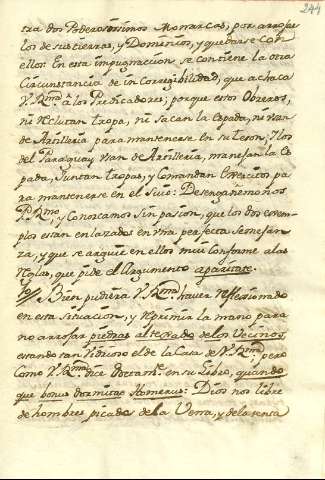 244
tra dos Poderosissimos Monarcas, por arrojar
los de sus tierras, y Dominios, y quedarse con
ellos. En esta impugnacion se contiene la otra
Circunstancia de incorregibilidad, que achaca
V. Rma. à los Predicadores; porque estos Obreros,
ni Reclutan tropa, ni sacan la Espada, ni usan
de Artilleria para mantenerse en su teson; Y los
del Paraguay usan de Artilleria, manejan la Es
pada, Juntan tropas, y Comandan Exercitos pa
ra mantenerse en el suio: Desengañemonos
P. Rmo., y Conozcamos sin pasion, que los dos exem
plos estan enlazados en una perfecta Semejan
za, y que se arguie en ellos mui Conforme a las
Reglas, que pide el Argumento apáritate.
Bien pudiera V. Rma. haver reflexionado
en esta situacion, y reprimir la mano para
no arrojar piedras al texado de los Vecinos,
estando tan Vidrioso el de la Casa de V. Rma. pero
Como V. Rma. dice en su Libro, quando
que bonus dormitat Homerus: Dios nos libre
de hombres picados de la Verra, y de la tenta